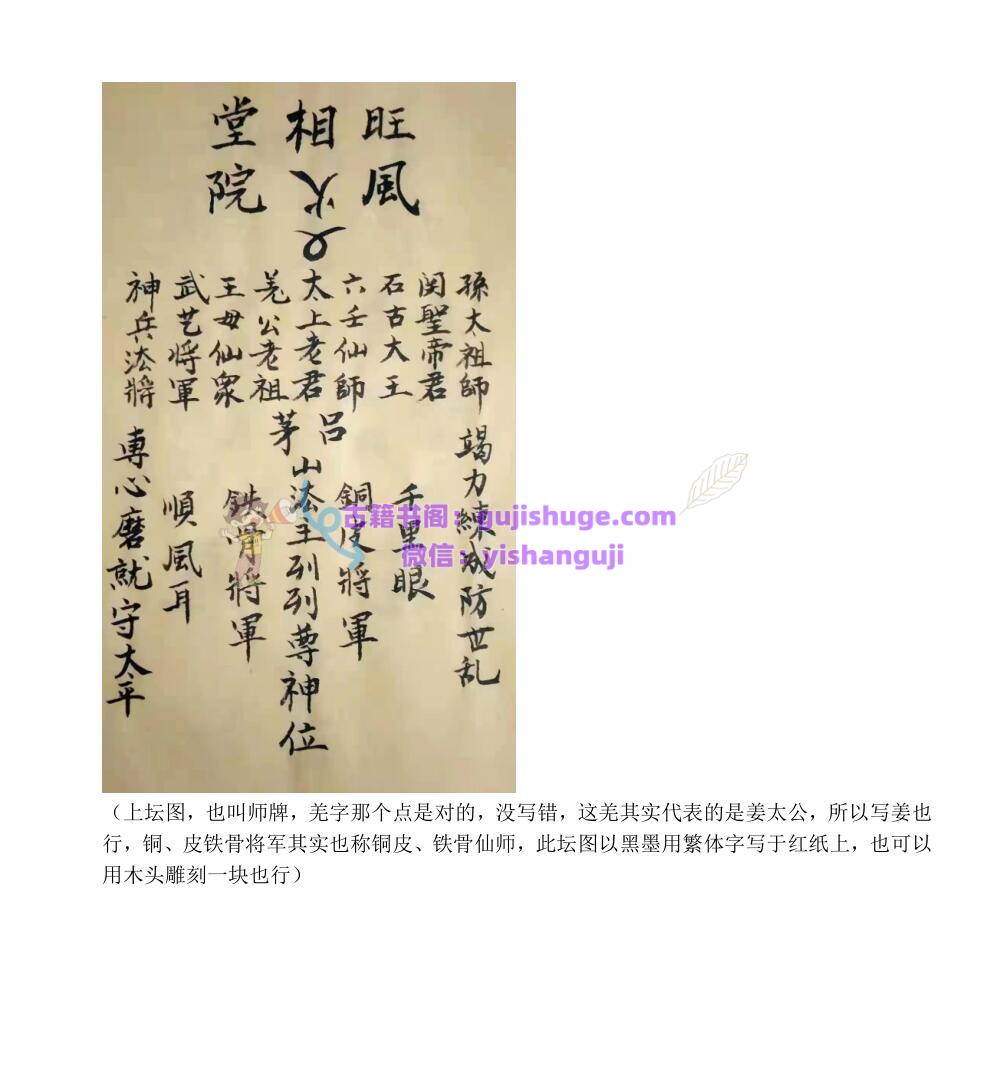 旺風
相火
堂院
孫太祖師
関聖帝君
石古大王
六壬仙師
太上老君
羗公老祖
王母仙衆
武艺将軍
神兵法將
竭力練成防世乱
千里眼
銅皮將軍
茅吕
山法主列列尊神位
鉄骨將軍
順風耳
専心磨就守太平
古籍书阁：gujishuge.com
微信：yishanguji
（上坛图，也叫师牌，羌字那个点是对的，没写错，这羌其实代表的是姜太公，所以写姜也
行，铜、皮铁骨将军其实也称铜皮、铁骨仙师，此坛图以黑墨用繁体字写于红纸上，也可以
用木头雕刻一块也行）